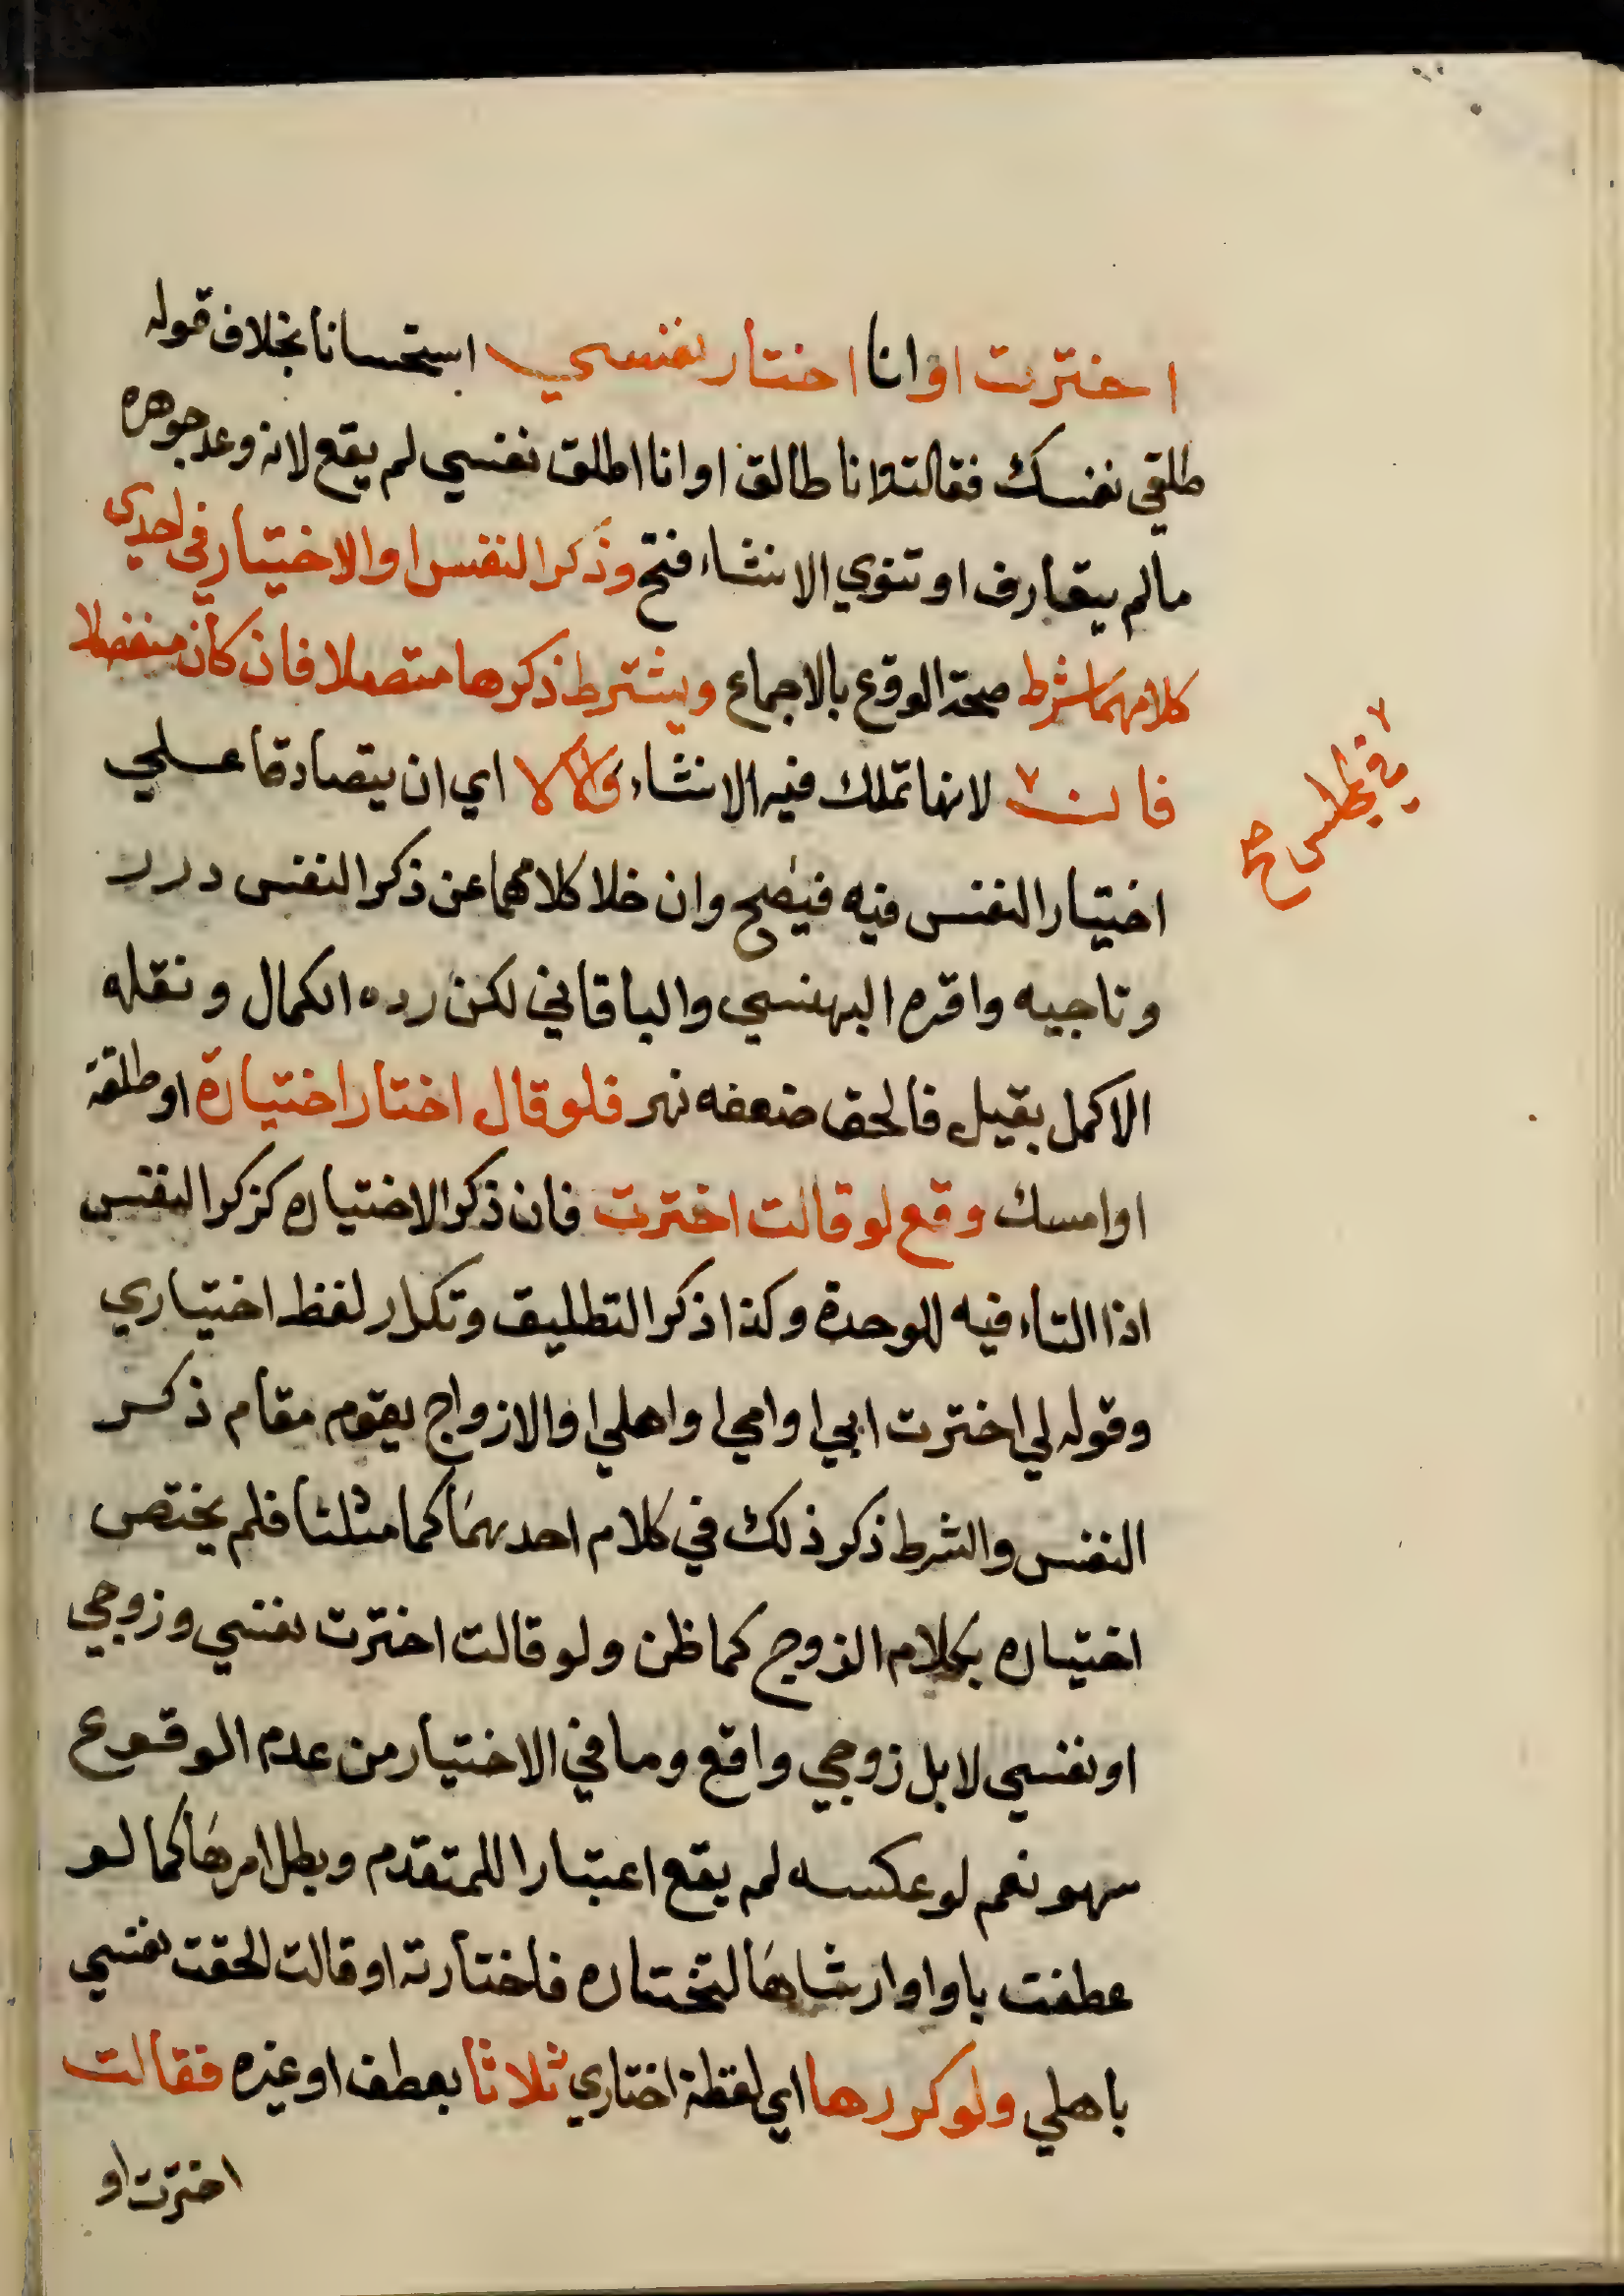 اخترت او انا اختار نفسي استحسانا بخلاف قوله
طلقي نفسك فقالت انا طالق او انا اطلق نفسي لم يقع لانه وعد جوهره
مالم يتعارف او تنوي الانشاء فتح وذكر النفس او الاختيار في احدي
كلامهما شرط صحة الوقع بالاجماع ويشترط ذكرها متصلا فان كان منفصلا
فان ٧ لانها تملك فيه الانشاء والا لا اي ان يتصادقا علي
٧ في مجلس صح
اختيار النفس فيه فيصح وان خلا كلامهما عن ذكر النفس درر
وتاجيه واقره البهنسي والباقاني لكن رده الكمال ونقله
الاكمل بقيل فالحق ضعفه نهر فلو قال اختار اختيارة او طلقة
او امسك وقع لو قالت اخترت فان ذكر الاختياره كزكر النفس
اذا التاء فيه للوحدة وكذا ذكر التطليق وتكرار لفظ اختياري
وقوله لي اخترت ابي او امي او اهلي او الازواج يقوم مقام ذكر
النفس والشرط ذكر ذلك في كلام احدهما كما مثلنا فلم يختص
اختياره بكلام الزوج كما ظن ولو قالت اخترت نفسي وزوجي
او نفسي لا بل زوجي واقع وما في الاختيار من عدم الوقوع
سهو نعم لو عكسه لم يقع اعتبارا للمتقدم وبطل امرها كما لو
عطفت باو او ارشاها لتختاره فاختارته او قالت الحقت نفسي
باهلي ولو كررها اي لفظة اختاري ثلاثا بعطف او غيره فقالت
اخترت او